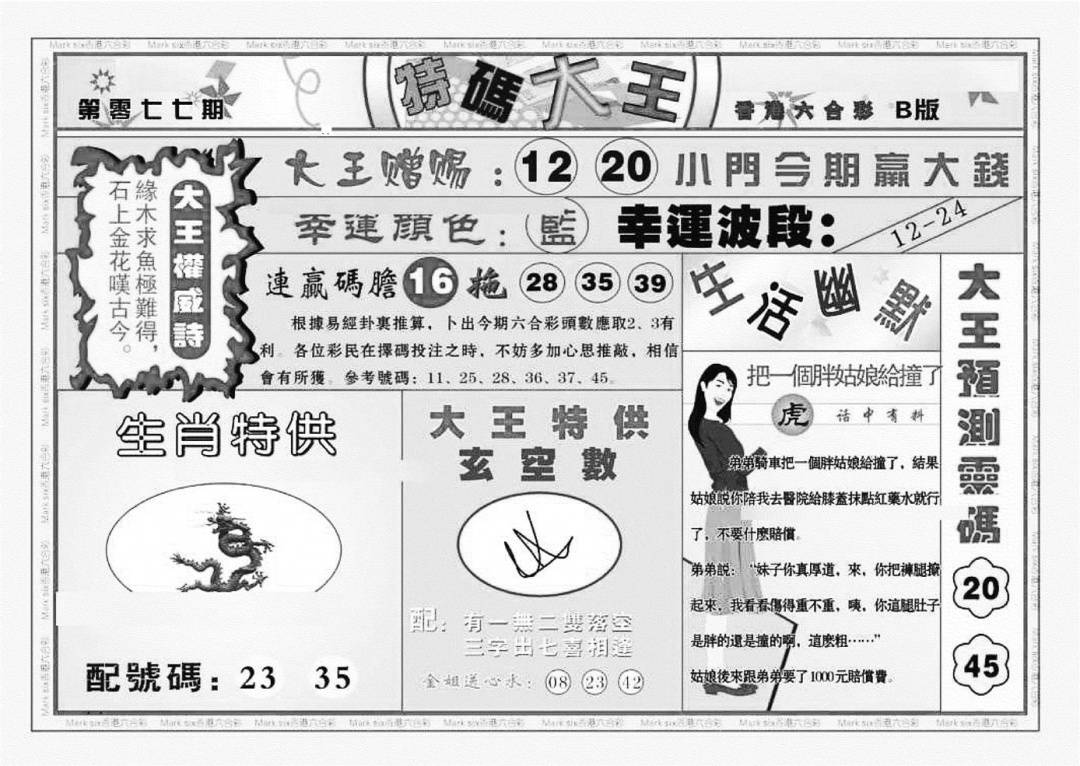 Mark six香港六合彩
第零七七期
特碼大王
香港六合彩 B版
大王權威詩
緣木求魚極難得，
石上金花嘆古今。
大王赠赐：12 20 小門今期贏大錢
幸運顏色：監
幸運波段：12-24
連贏碼膽16拖28 35 39
根據易經卦裏推算，卜出今期六合彩頭數應取2、3有
利。各位彩民在擇碼投注之時，不妨多加心思推敲，相信
會有所獲。參考號碼：11、25、28、36、37、45。
生活幽默
把一個胖姑娘給撞了
虎 話中有料
弟弟騎車把一個胖姑娘給撞了，結果
姑娘説你陪我去醫院給膝蓋抹點紅藥水就行
了，不要什麽賠償。
弟弟説：“妹子你真厚道，來，你把褲腿撩
起來，我看看傷得重不重，咦，你這腿肚子
是胖的還是撞的啊，這麽粗……”
姑娘後來跟弟弟要了1000元賠償費。
大王預測靈碼
20
45
生肖特供
配號碼：23 35
大王特供
玄空數
配：有一無二雙落空
三字出七喜相逢
金姐送心水：08 23 42